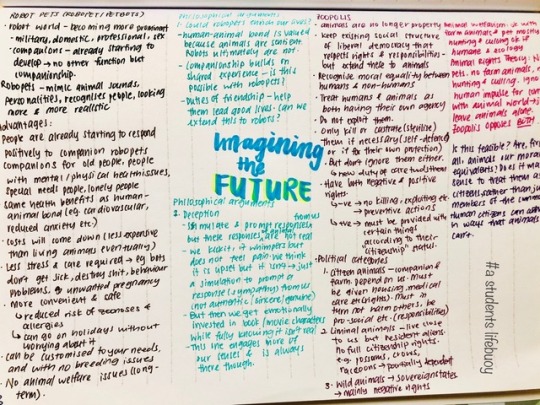 ROBOT PETS (ROBOPETS/PETBOTS)
• robot world - becoming more prominent
- military, domestic, professional, sex
• companions - already starting to
develop → no other function but
companionship.
Robopets - mimic animal sounds,
personalities, recognises people, looking
more & more realistic
Advantages:
• People are already starting to respond
positively to companion robopets
• Companions for old people, people
with mental/physical health issues,
special needs people, lonely people
• same health benefits as human-
animal bond (eg. cardiovascular,
reduced anxiety etc.)
• costs will come down (less expensive
than living animals eventually)
• Less stress & care required → eg bots
don't get sick, destroy shit, behaviour
problems, & unwanted pregnancy
• More convenient & safe
↳ reduced risk of zoonoses &
allergies
↳ can go on holidays without
worrying about it
• can be customised to your needs,
and with no breeding issues
• No animal welfare issues (long-
term).
Philosophical arguments
1. Could robopets enrich our lives?
- human-animal bond is valued
because animals are sentient.
Robots ultimately are not
- Companionship builds on
shared experience - is this
possible with robopets?
- Duties of friendship - help
them lead good lives. Can we
extend this to robots?
Imagining
the
FUTURE
Philosophical arguments
2. Deception
- simulate & prompt responses from us
but these responses are not real
- we kick it, it whimpers but
does not feel pain. We think
it is upset but it isn't → just
a simulation to prompt a
response (sympathy) from us
(not authentic/sincere/genuine)
- But then we get emotionally
invested in book/movie characters
while fully knowing it isn't real
- This one engages more of
our senses & is always
there though.
ZOOPOLIS
- animals are no longer property
- keep existing social structure
of liberal democracy that
respects rights & responsibilities -
but extend these to animals
- Recognise moral equality between
humans & non-humans
- Treat humans & animals as
both having their own agency
- Do not exploit them.
- Only kill or castrate (sterilise)
them if necessary (self-defence
or for their own protection)
- But don't ignore them either.
↳ now duty of care towards them
- Have both negative & positive
rights.
↳ -ve → no killing, exploiting etc.
→ preventive actions
↳ +ve → must be provided with
certain things
according to their
'citizenship' status.
Political categories
1. Citizen animals - companion &
farm. depend on us. Must
be given housing, medical
care etc (rights). Must in
turn not harm others, be
pro-social etc. (responsibilities)
2. Liminal animals - live close
to us but resident aliens.
no full citizenship rights.
e.g. possums, crows,
raccoons →
3. Wild animals → sovereign states
→ mainly negative rights
Animal Welfarism:
farm animals & pet
hunting & culling
humane & ecology
Animal Rights Theory: No
pets, no farm animals, no
hunting & culling.
human impulse for
with animal world →
leave animals alone
Zoopolis opposes BOTH
Is this feasible? Are, first
all, animals our moral
equivalents? Does it make
sense to treat them as
citizens rather than just
members of the community
Human citizens can
in ways that animals
can't.
#a students lifebuoy